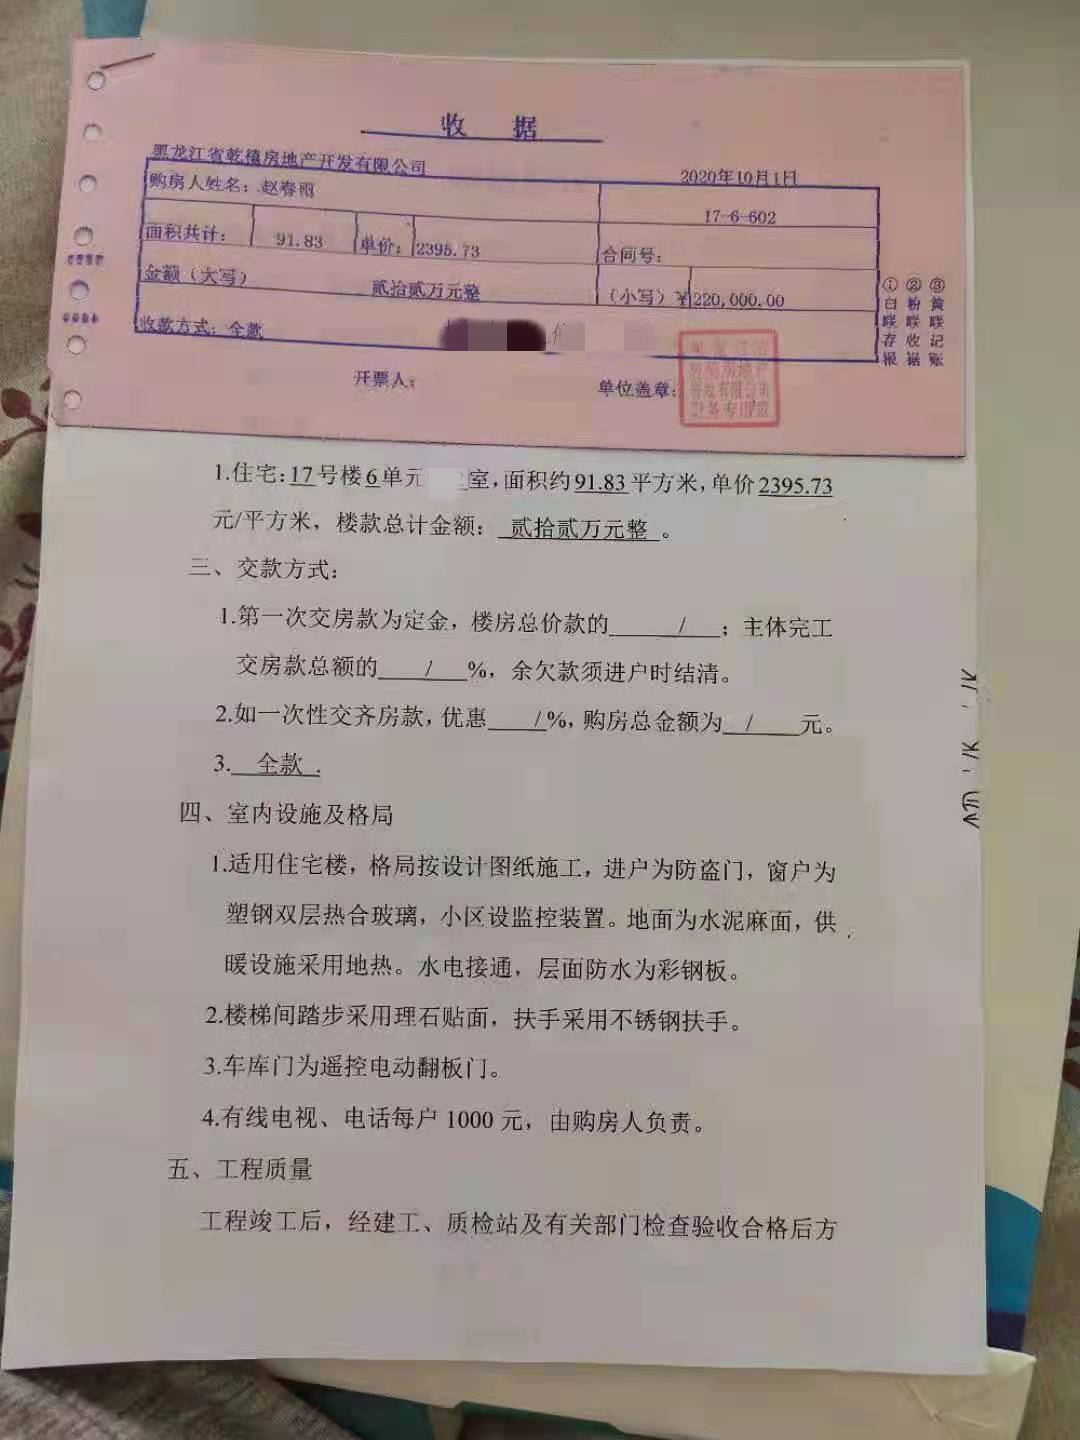 收 据
黑龙江省乾禧房地产开发有限公司 2020年10月1日
购房人姓名：赵春丽 17-6-602
面积共计： 91.83 单价： 2395.73 合同号：
金额（大写） 贰拾贰万元整 （小写）￥220,000.00
收款方式：全款
开票人： 单位盖章：
①白联存根
②粉联收据
③黄联记账
房地产
开发有限公司
财务专用章
1.住宅:17号楼6单元 室,面积约91.83平方米,单价2395.73
元/平方米，楼款总计金额： 贰拾贰万元整 。
三、交款方式:
1.第一次交房款为定金，楼房总价款的 / ；主体完工
交房款总额的 / %，余欠款须进户时结清。
2.如一次性交齐房款,优惠 / %,购房总金额为 / 元。
3. 全款 .
四、室内设施及格局
1.适用住宅楼，格局按设计图纸施工，进户为防盗门，窗户为
塑钢双层热合玻璃，小区设监控装置。地面为水泥麻面，供
暖设施采用地热。水电接通，层面防水为彩钢板。
2.楼梯间踏步采用理石贴面，扶手采用不锈钢扶手。
3.车库门为遥控电动翻板门。
4.有线电视、电话每户 1000 元，由购房人负责。
五、工程质量
工程竣工后，经建工、质检站及有关部门检查验收合格后方